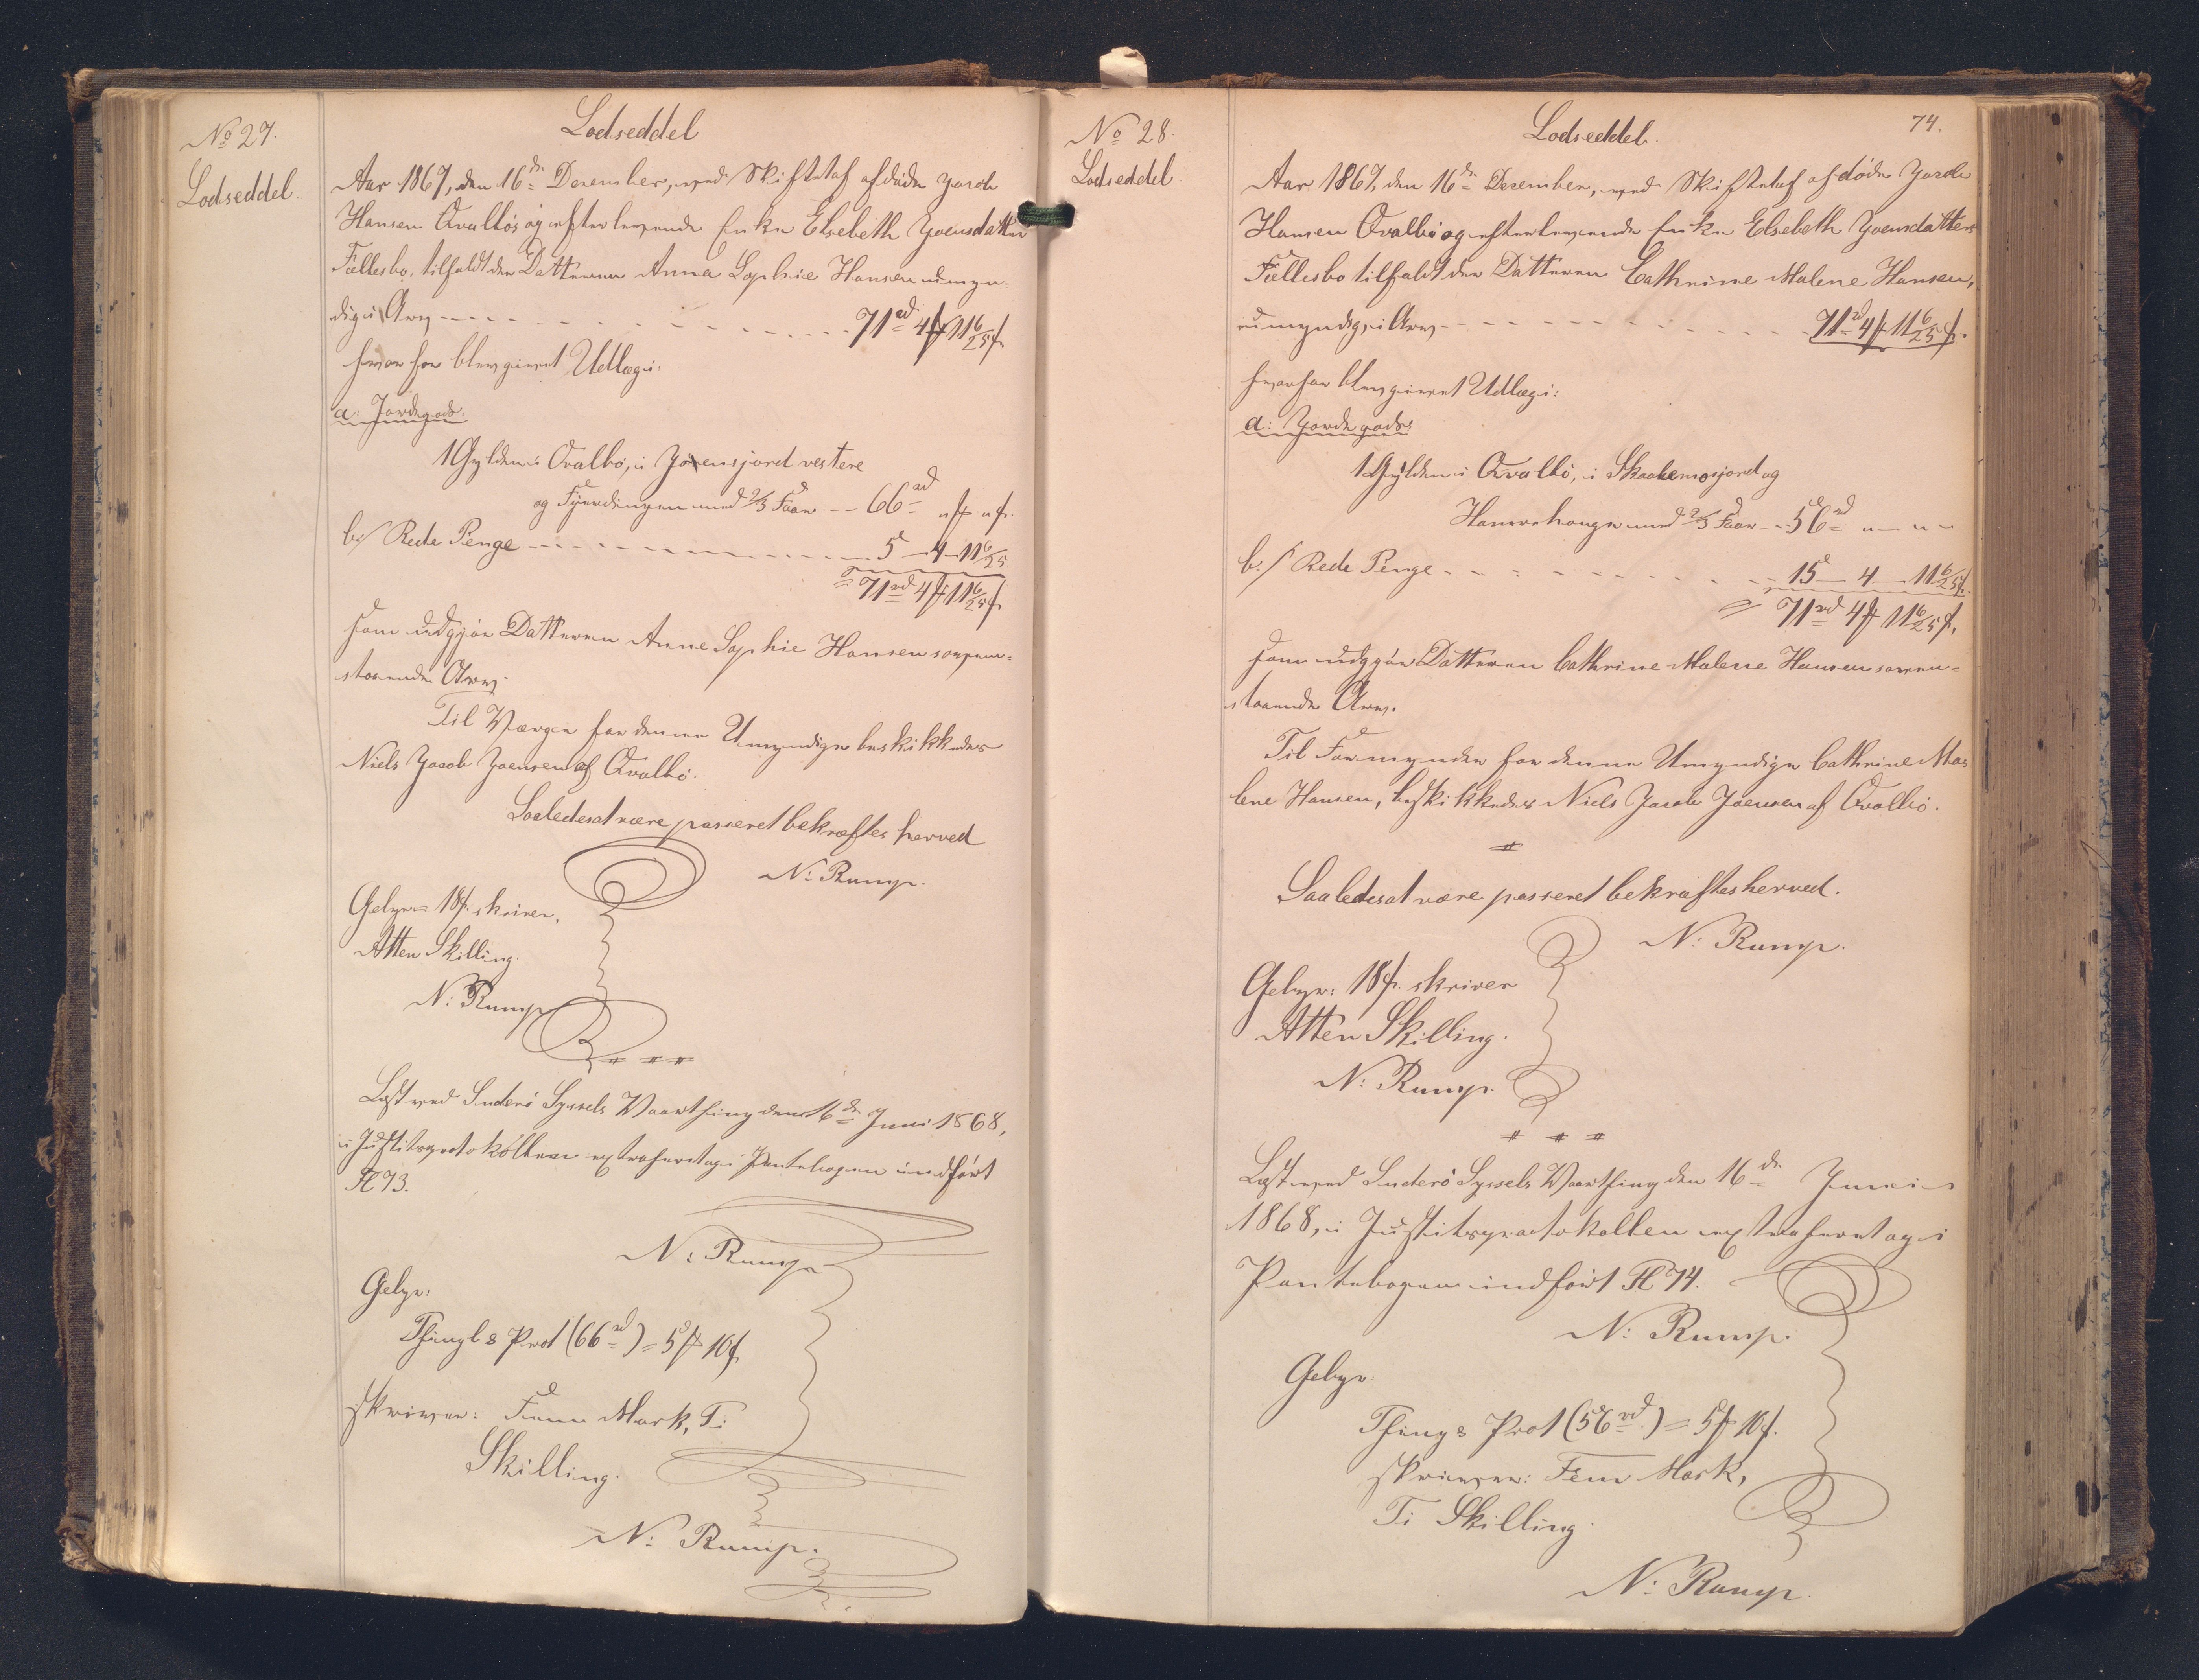 No 27.
Lodseddel
Lodseddel
Aar 1867, den 16de December, ved Skiftet af afdøde Jacob
Hansen Qvalbøs og efterlevende Enke Elsebeth Joensdatters
Fællesbo, tilfaldt der Datteren Anna Sophie Hansen umyn-
dig i Arv - - - 71rd 4 ₻ 11 6/25 ſ.
hvorfor blev givet Udlæg i:
a: Jordegods:
1 Gylden i Qvalbø, i Joensjord vestere
og Fjerdingen med 2/3 Faar - - 66rd " ₻ " ſ.
b/ Rede Penge - - - 5 - 4 - 11 6/25
= 71rd 4 ₻ 11 6/25 ſ.
som udgjør Datteren Anne Sophie Hansen oven-
staaende Arv.
Til Værge for denne Umyndige beskikkedes
Niels Jacob Joensen af Qvalbø.
Saaledes at være passeret bekræftes herved
N: Rump.
Gebyr = 18 ſ. skriver,
Atten Skilling.
N: Rump
Læst ved Suderø Syssels Vaarthing den 16de Juni 1868,
i Justitsprotokollen extraheret og i Pantebogen indført
Fl 73.
N: Rump
Gebyr:
Thingl & Prot (66rd) = 5 ₻ 10 ſ
skriver: Fem Mark, Ti
Skilling.
N: Rump.
No 28.
Lodseddel
Lodseddel.
74.
Aar 1867, den 16de December, ved Skiftet af afdøde Jacob
Hansen Qvalbø og efterlevende Enke Elsebeth Joensdatters
Fællesbo tilfaldt der Datteren Cathrine Malene Hansen,
umyndig, i Arv - - - 71rd 4 ₻ 11 6/25 ſ.
hvorfor blev givet Udlæg i:
a: Jordegods:
1 Gylden i Qvalbø, i Skaalemosjord og
Hamrehauge med 2/3 Faar - - 56rd " - " -
b:/ Rede Penge - - - 15 - 4 - 11 6/25 ſ.
= 71rd 4 ₻ 11 6/25 ſ.
som udgjør Datteren Cathrine Malene Hansen oven-
staaende Arv.
Til Formynder for denne Umyndige Cathrine Ma-
lene Hansen, beskikkedes Niels Jacob Joensen af Qvalbø.
Saaledes at være passeret bekræftes herved.
N: Rump.
Gebyr: 18 ſ. skriver
Atten Skilling.
N: Rump.
Læst ved Suderø Syssels Vaarthing den 16de Juni
1868, i Justitsprotokollen extraheret og i
Pantebogen indført Fl 74.
N: Rump.
Gebyr.
Thing & Prot (56rd) = 5 ₻ 10 ſ.
skriver: Fem Mark,
Ti Skilling.
N: Rump.